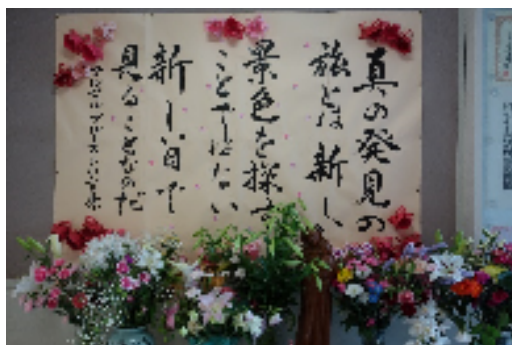 真の発見の
旅とは新し
景色を探す
ことではない
新しい目で
見ることなのだ